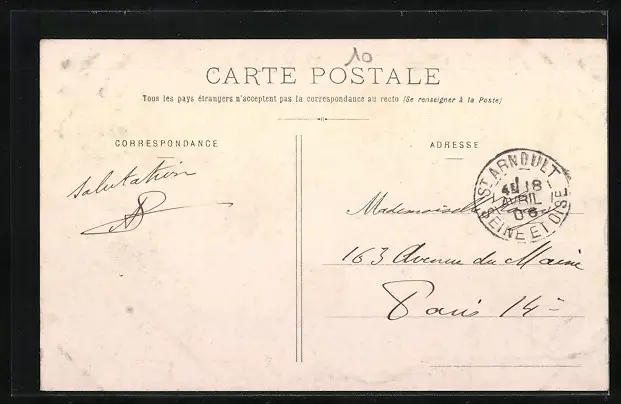 10
CARTE POSTALE
Tous les pays étrangers n'acceptent pas la correspondance au recto (Se renseigner à la Poste)
CORRESPONDANCE
ADRESSE
Salutation
ST ARNOULT
18
AVRIL
06
SEINE ET OISE
Mademoiselle
163 Avenue du Maine
Paris 14